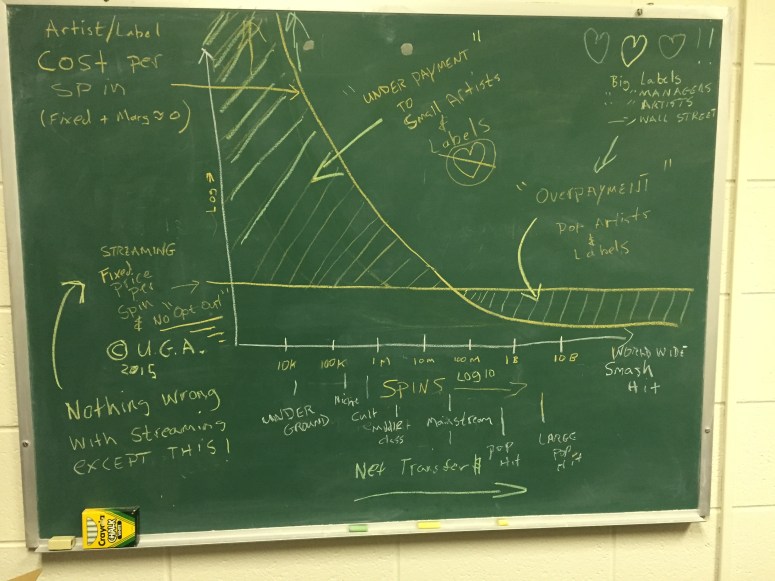 Artist/Label
Cost per
Spin
(Fixed + Marg ≈ 0)
LOG →
"UNDER PAYMENT"
TO
Small Artists
&
Labels
!!
Big Labels
" " MANAGERS
" " ARTISTS
→ WALL STREET
"OVERPAYMENT"
Pop Artists
&
Labels
STREAMING
Fixed
Price
per
Spin
& "No Opt Out"
© U.G.A.
2015
Nothing wrong
with Streaming
EXCEPT THIS!
10K 100K 1M 10M 100M 1B 10B
WORLD WIDE
Smash
Hit
SPINS LOG 10
UNDER
GROUND
Niche
Cult
Middle
class
Mainstream
POP
Hit
LARGE
POP
Hit
Net Transfer $
Crayola
CHALK